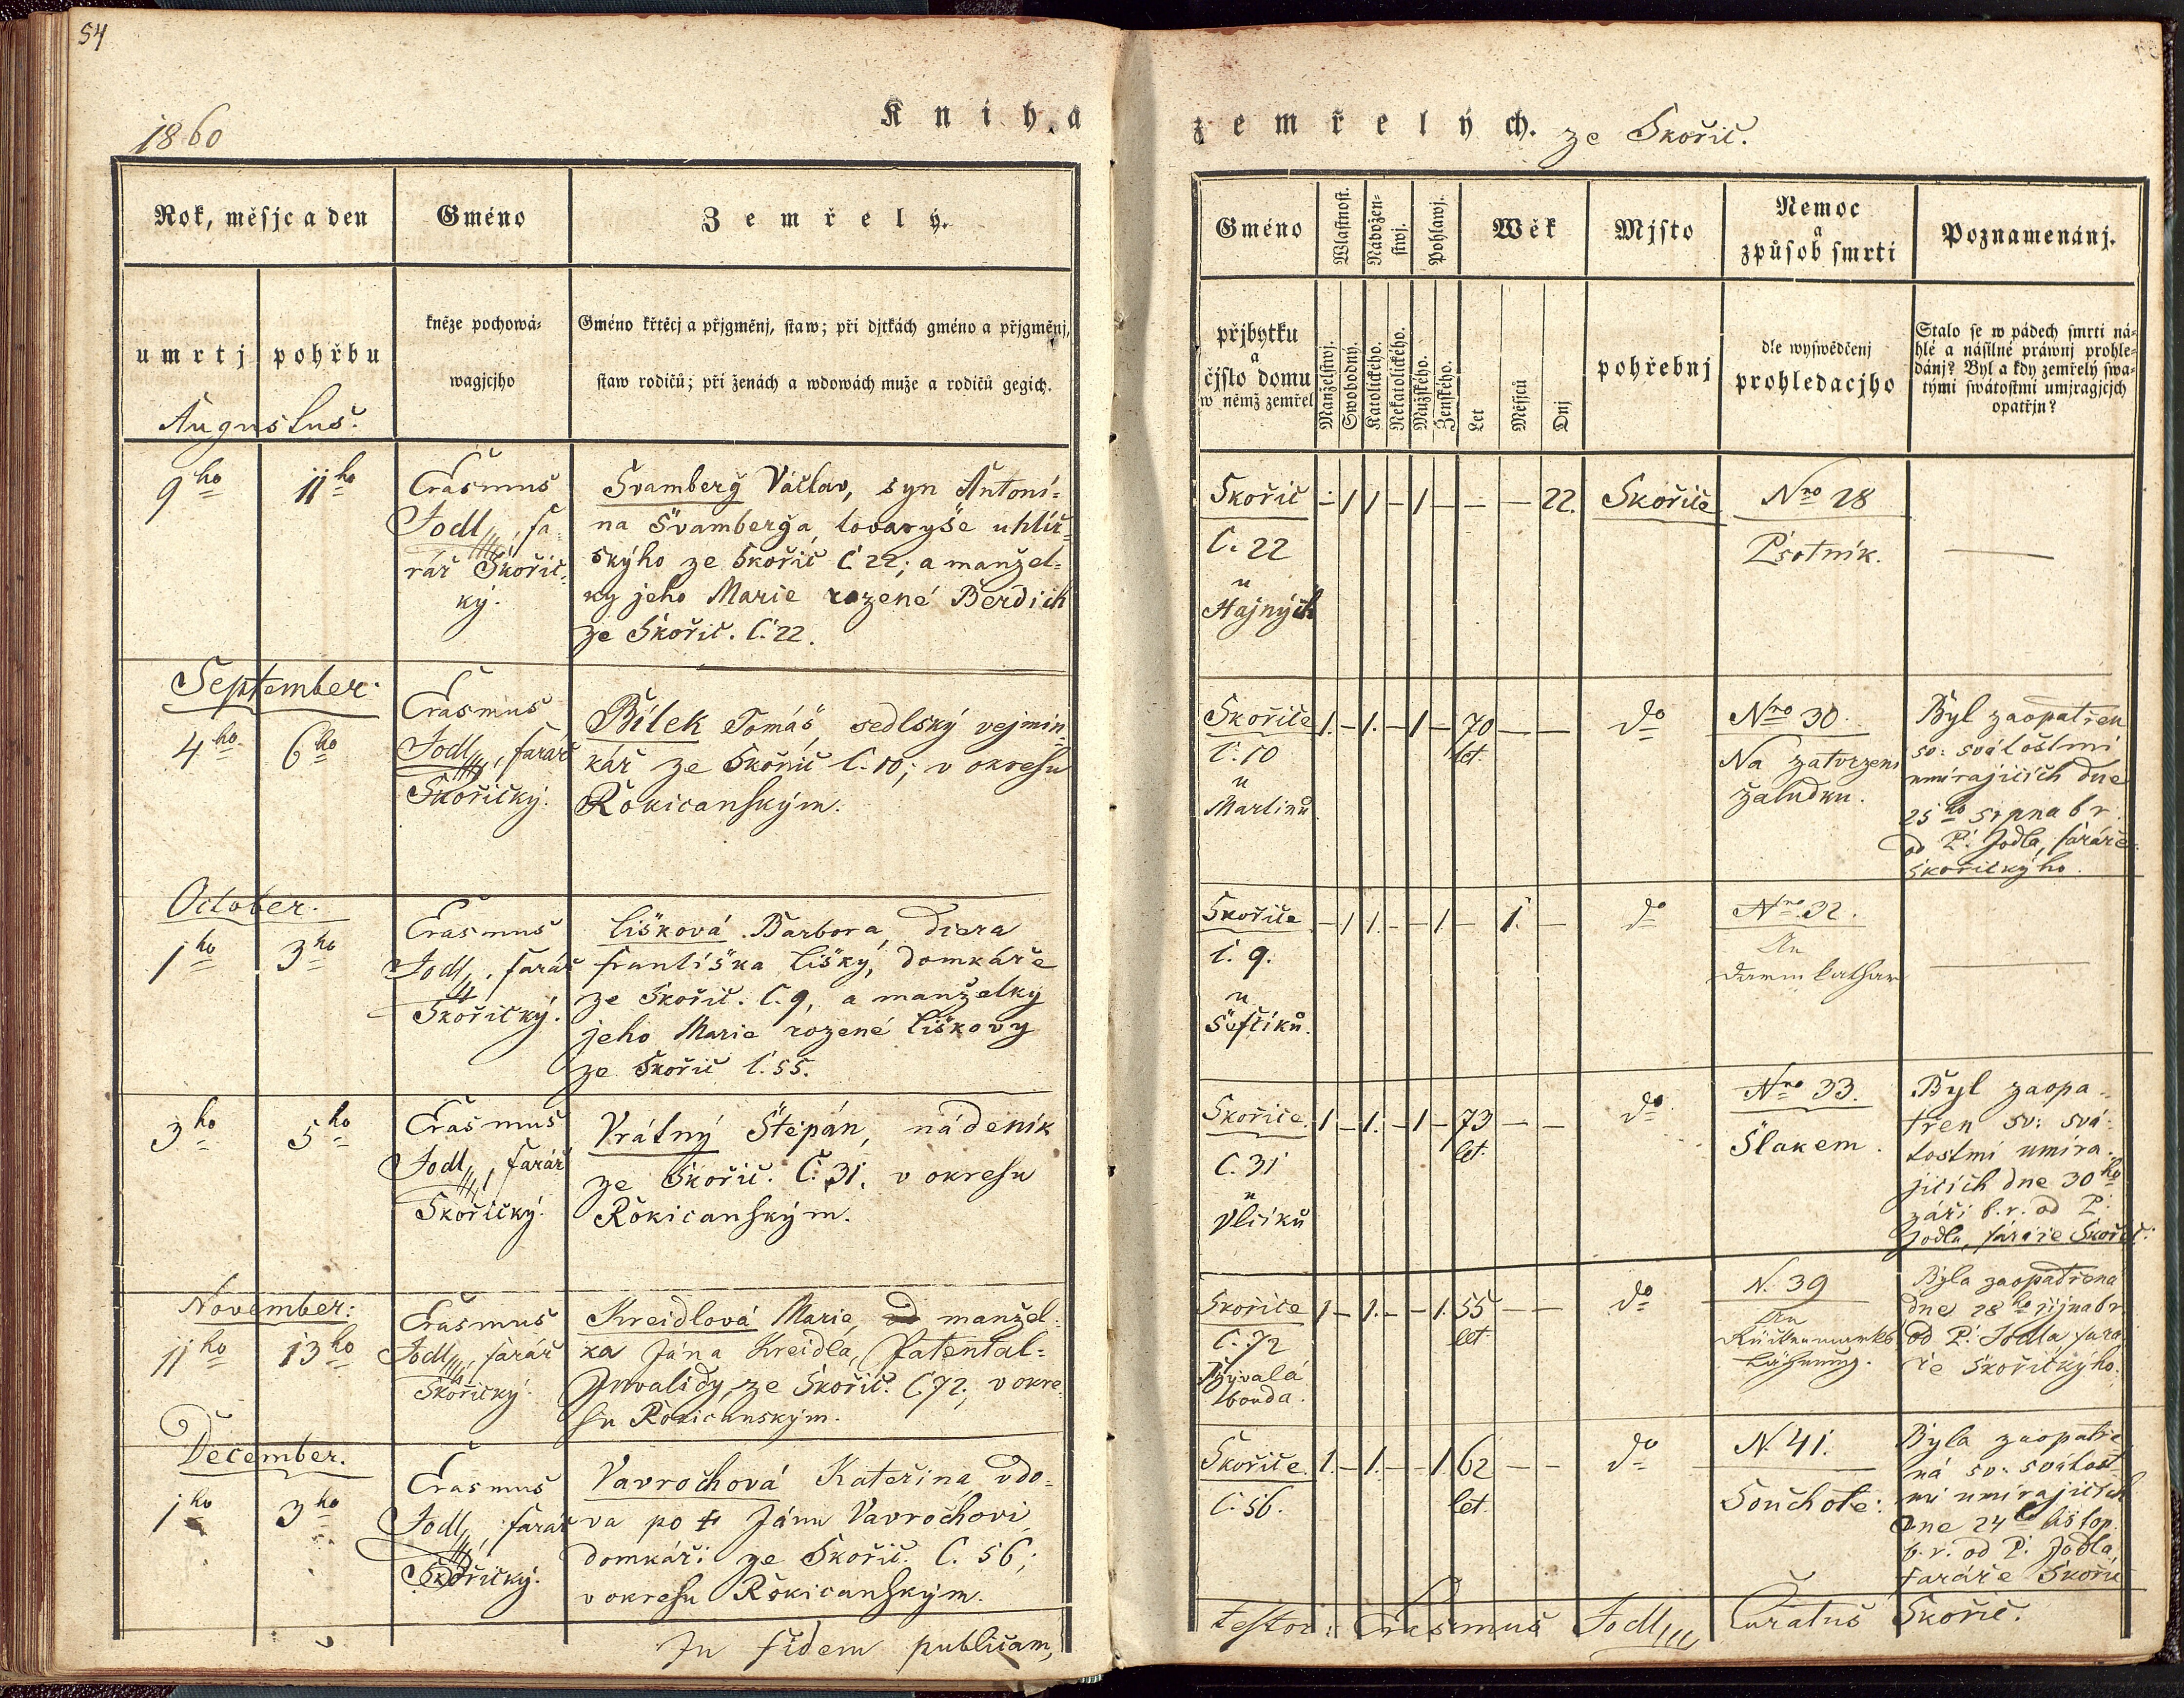 54
1860
Kniha
Rok, měsjc a den
Gméno
Zemřelý.
umrtj
pohřbu
kněze pochowá-
wagjcjho
Gméno křtěcj a přjgměnj, staw; při djtkách gméno a přjgměnj,
staw rodičů; při ženách a wdowách muže a rodičů gegich.
Augustus.
9ho
11ho
Erasmus
Jodl, fa-
rář Skořic-
ký.
Svamberg Václav, syn Antoni-
na Svamberga, tovaryše uhlíř-
skýho ze Skořic Č 22; a manžel-
ky jeho Marie rozené Berdich
ze Skořic. Č. 22.
September.
4ho
6ho
Erasmus
Jodl, farář
Skořický.
Bílek Tomáš, sedlský vejmin-
kář ze Skořic Č. 10; v okresu
Rokicanským.
October.
1ho
3ho
Erasmus
Jodl, farář
Skořický.
Lišková Barbora, dcera
Františka Lišky, domkáře
ze Skořic. Č. 9, a manželky
jeho Marie rozené Liškovy
ze Skořic č. 55.
3ho
5ho
Erasmus
Jodl, farář
Skořický.
Vrátný Štepán, nádeník
ze Skořic. Č. 31, v okresu
Rokicanským.
November:
11ho
13ho
Erasmus
Jodl, farář
Skořický.
Kreidlová Marie, manžel-
ka Jána Kreidla, Patental-
Invalidy, ze Skořic. Č. 72; v okre-
su Rokicanským.
December.
1ho
3ho
Erasmus
Jodl, farář
Skořický.
Vavrochová Kateřina, vdo-
va po † Jánu Vavrochovi
domkáři ze Skořic. Č. 56;
v okresu Rokicanským.
In fidem publicam,
zemřelých. ze Skořic.
Gméno
Wlastnost.
Nábožen-
stwj.
Pohlawj.
Wěk
Mjsto
Nemoc
a
způsob smrti
Poznamenánj.
přjbytku
a
čjslo domu
w němž zemřel
Manželstwj.
Swobodný.
Katolického.
Nekatolického.
Mužského.
Ženského.
Let
Měsjců
Dnj
pohřebnj
dle wyswědčenj
prohledacjho
Stalo se w pádech smrti ná-
hlé a násilné práwnj prohle-
dánj? Byl a kdy zemřelý swa-
tými swátostmi umjragjcjch
opatřjn?
Skořic - 1 1 - 1 - - - 22. Skořice Nro 28
Č. 22
u
Hajných
Psotník.
Skořice 1. - 1. - 1 - 70 - - do Nro 30.
let.
Č. 10
u
Martinů
Na zatvrzení
žaludku.
Byl zaopatřen
sv: svátostmi
umírajících dne
25ho srpna b r.
od P. Jodla, faráře
skořickýho.
Skořice - 1 1. - - 1 - 1. - do Nro 32.
č. 9.
u
Šeflíků.
An
Darmkathar
Skořice. 1 - 1. - 1 - 73 - - do Nro 33.
let.
Č. 31
u
Vlčiků
Šlakem.
Byl zaopa-
třen sv: svá-
tostmi umíra-
jících dne 30ho
záři b. r. od P:
Jodla, faráře Skořic:
Skořice 1 - 1. - - 1. 55 - - do N. 39
let.
Č. 72
Bývalá
bouda.
An
Rückenmarks
Lähmung.
Byla zaopatřena
dne 28ho října b r
od P: Jodla, fará-
ře Skořickýho.
Skořice. 1. - 1. - - 1. 62 - - do N. 41.
let.
Č. 56.
Souchote:
Byla zaopatře-
ná sv: svátost-
mi umírajících
dne 24ho listop.
b. r. od P. Jodla,
faráře Skořic
testor: Erasmus Jodl, Curatus Skořic.